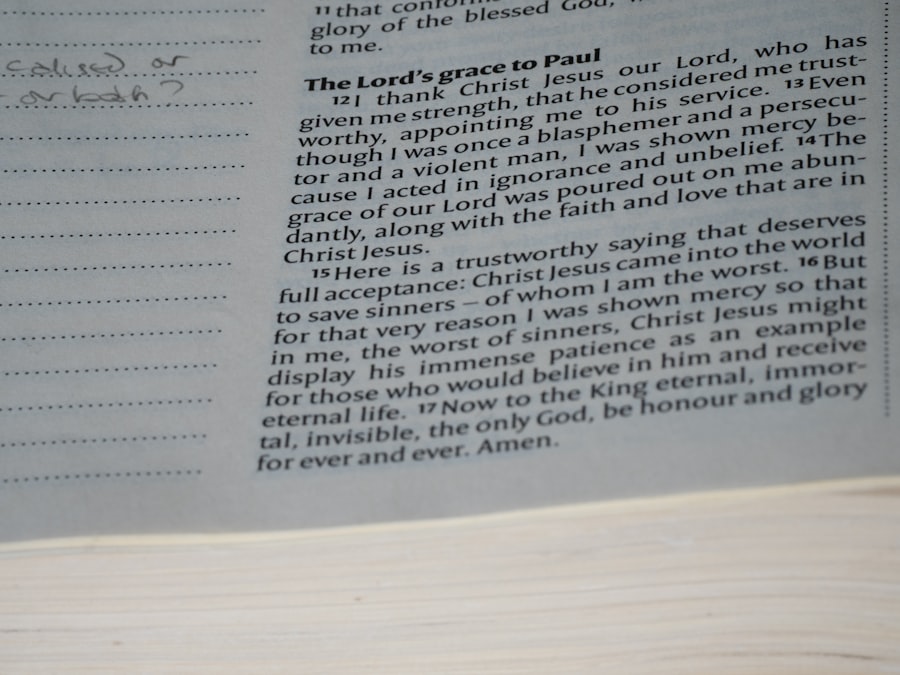 or
or both?
11 that
glory of the blessed God,
to me.
The Lord's grace to Paul
12 I thank Christ Jesus our Lord, who has
given me strength, that he considered me trust-
worthy, appointing me to his service. 13 Even
though I was once a blasphemer and a persecu-
tor and a violent man, I was shown mercy be-
cause I acted in ignorance and unbelief. 14 The
grace of our Lord was poured out on me abun-
dantly, along with the faith and love that are in
Christ Jesus.
15 Here is a trustworthy saying that deserves
full acceptance: Christ Jesus came into the world
to save sinners – of whom I am the worst. 16 But
for that very reason I was shown mercy so that
in me, the worst of sinners, Christ Jesus might
display his immense patience as an example
for those who would believe in him and receive
eternal life. 17 Now to the King eternal, immor-
tal, invisible, the only God, be honour and glory
for ever and ever. Amen.